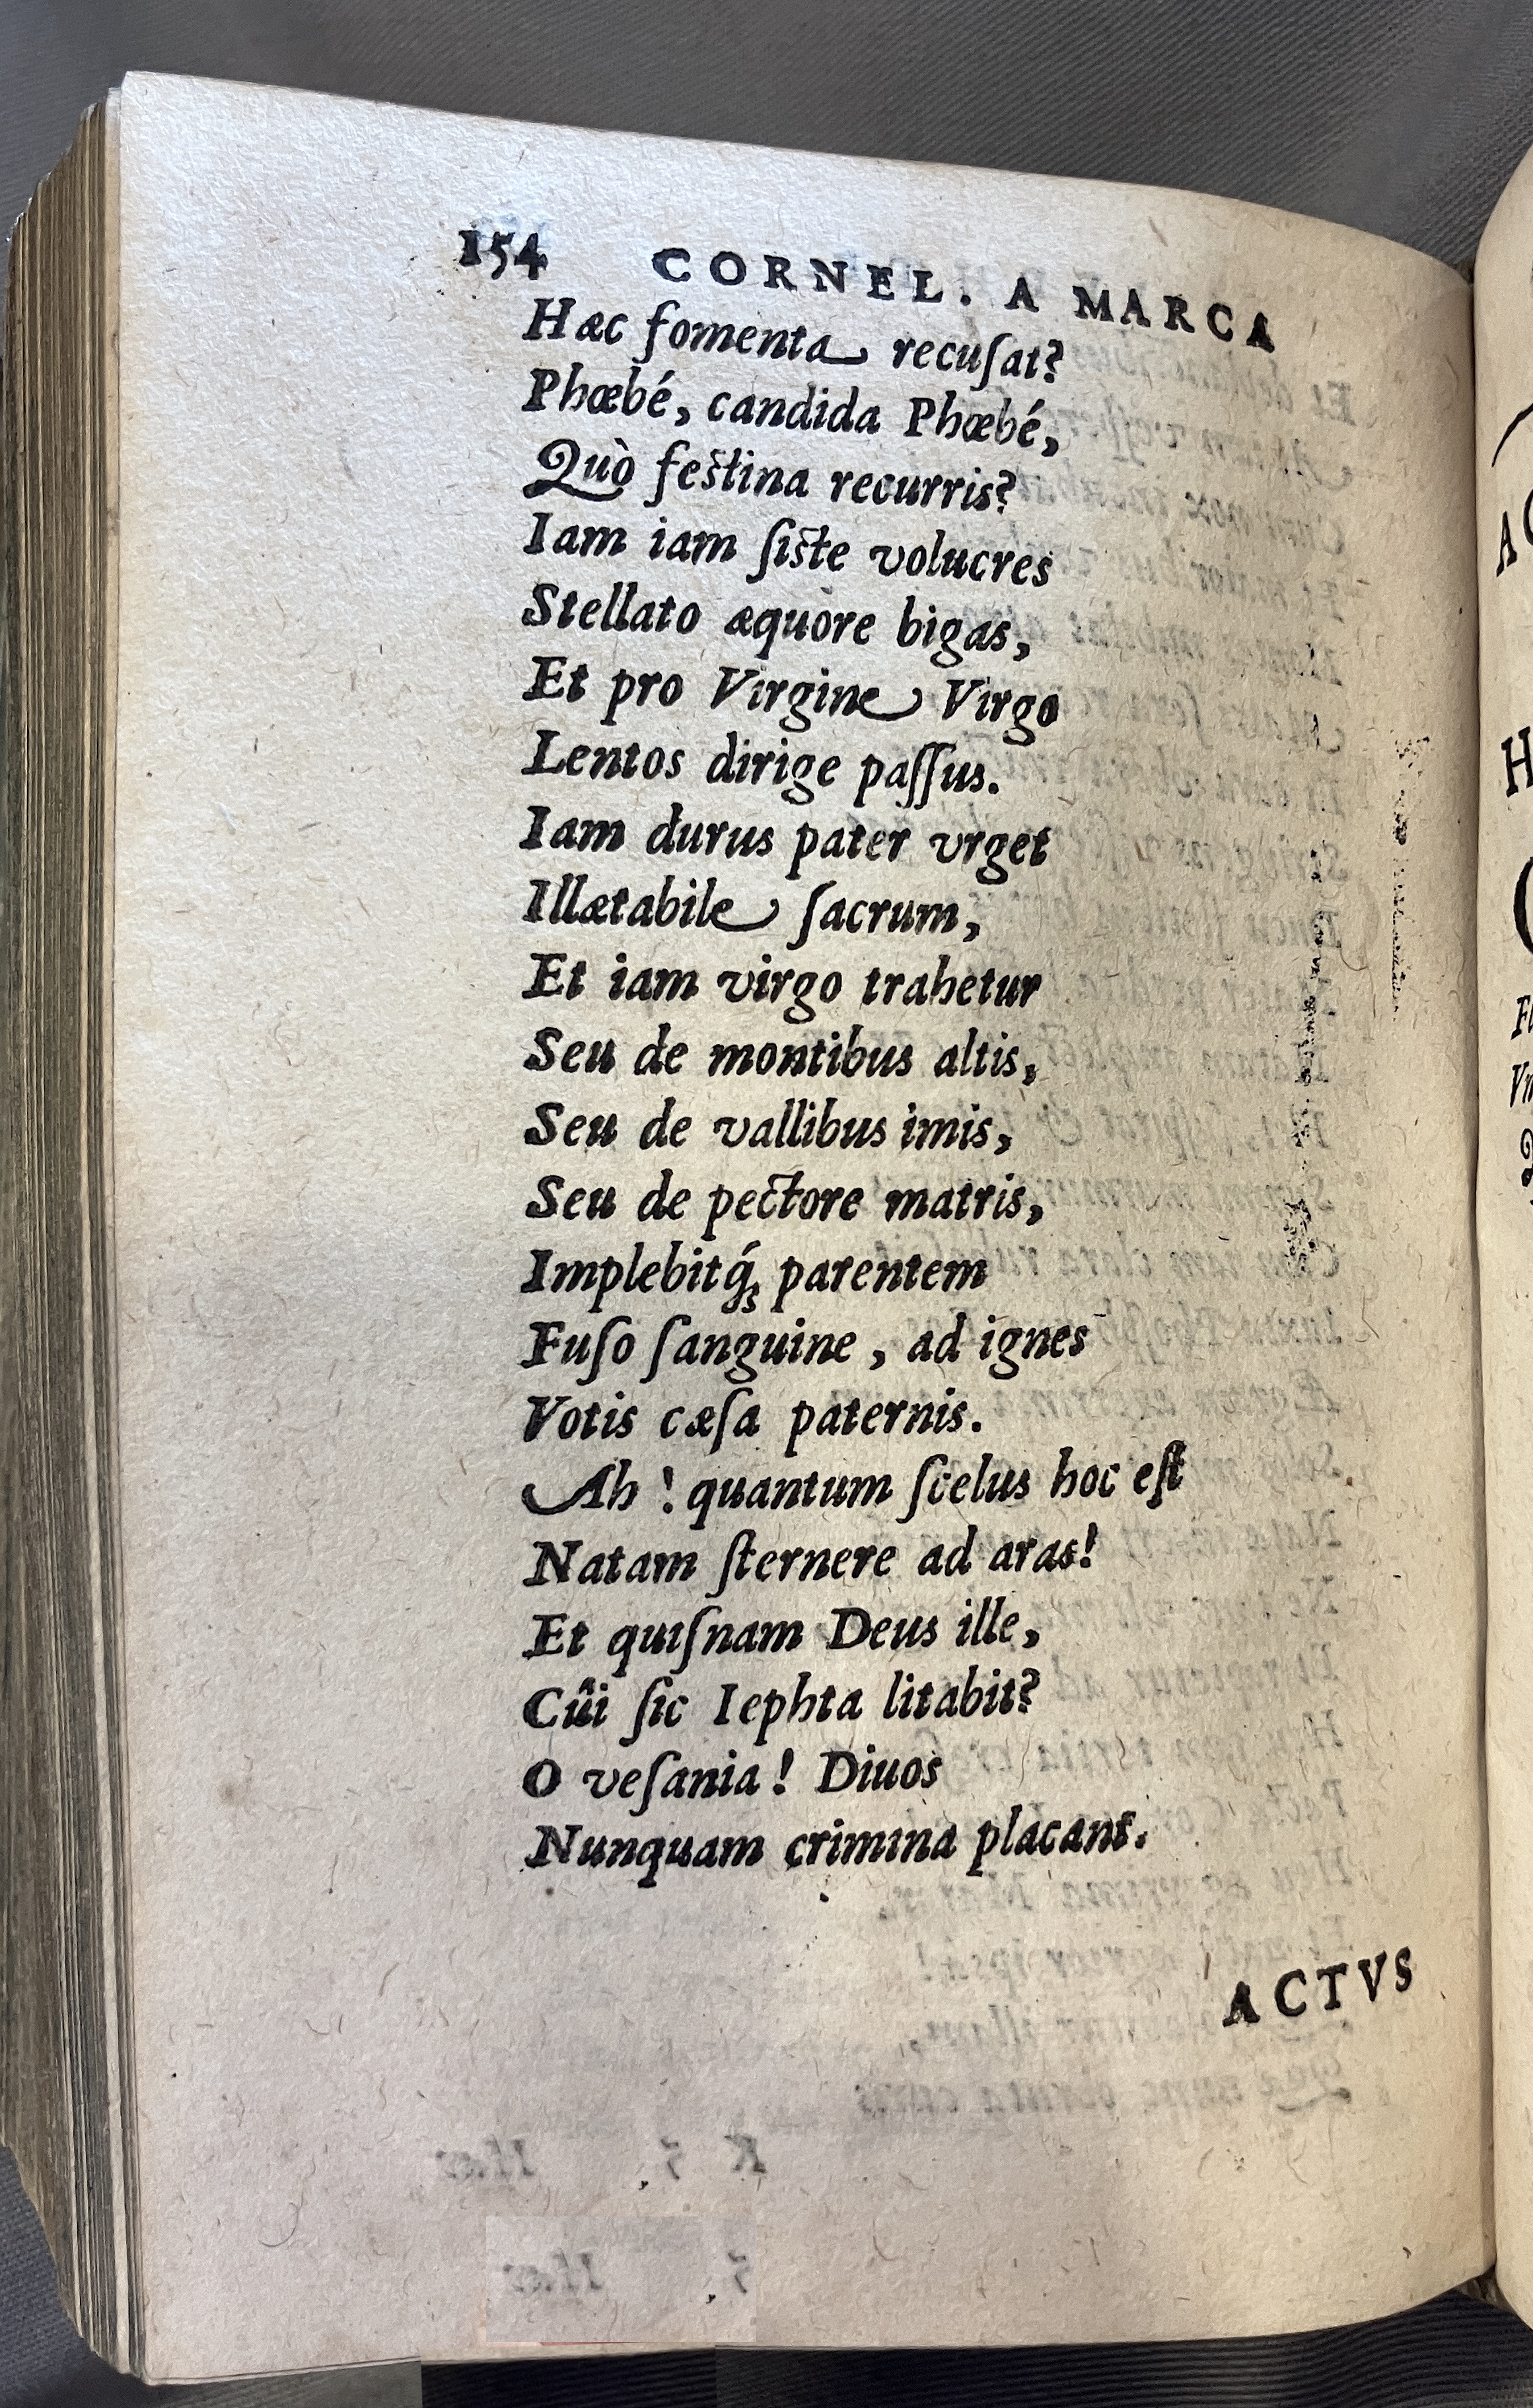 154 CORNEL. A MARCA
Hæc fomenta recuſat?
Phœbé, candida Phœbé,
Quò feſtina recurris?
Iam iam ſiſte volucres
Stellato æquore bigas,
Et pro Virgine Virgo
Lentos dirige paſſus.
Iam durus pater vrget
Illætabile ſacrum,
Et iam virgo trahetur
Seu de montibus altis,
Seu de vallibus imis,
Seu de pectore matris,
Implebitq́; parentem
Fuſo ſanguine, ad ignes
Votis cæſa paternis.
Ah! quantum ſcelus hoc eſt
Natam ſternere ad aras!
Et quiſnam Deus ille,
Cûi ſic Iephta litabit?
O veſania! Diuos
Nunquam crimina placant.
ACTVS